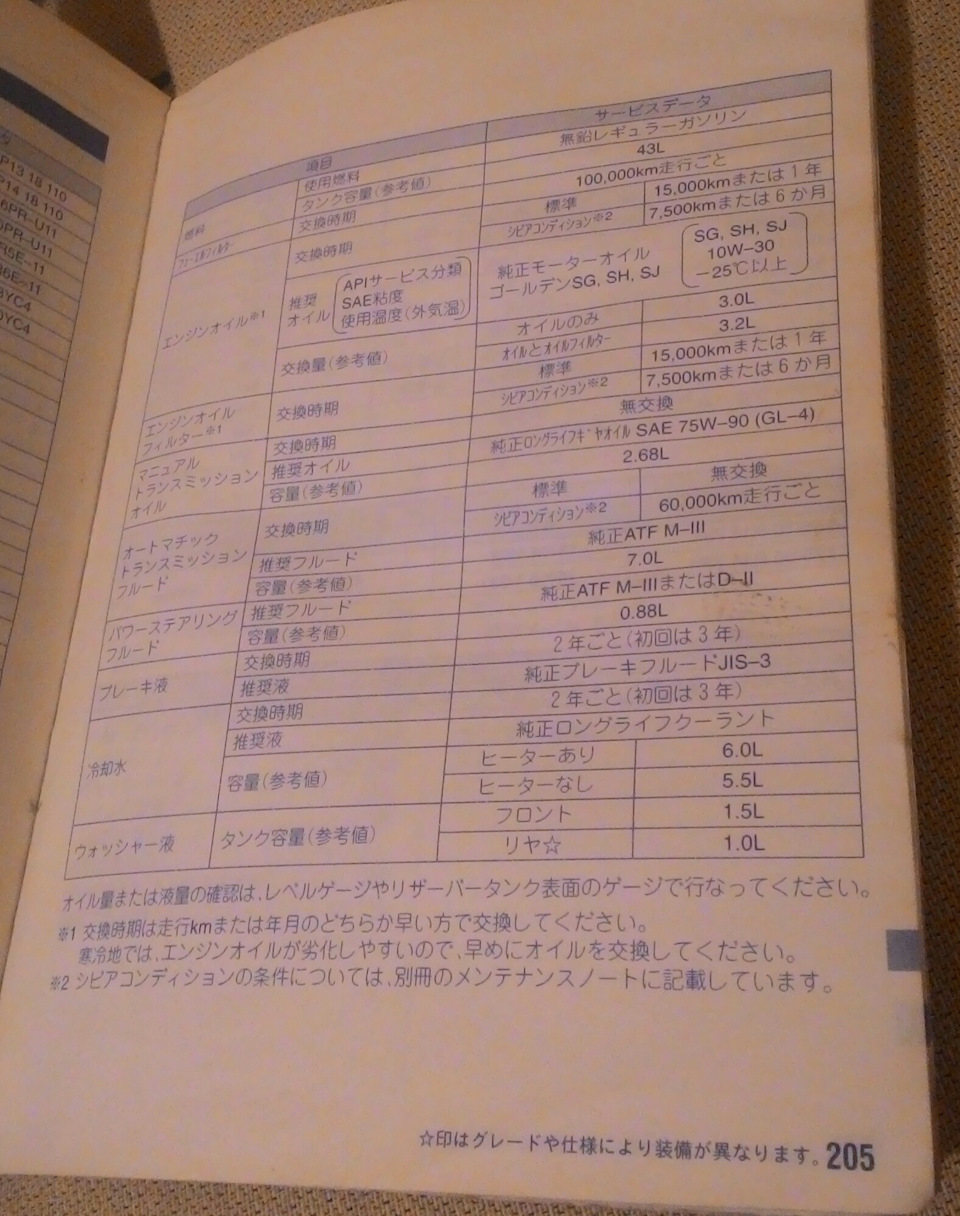 タ
P13 18 110
P14 18 110
6PR-U11
6PR-U11
R5E-11
R6E-11
8YC4
0YC4
項目 サービスデータ
燃料 使用燃料 無鉛レギュラーガソリン
タンク容量(参考値) 43L
フューエルフィルター 交換時期 100,000km走行ごと
エンジンオイル※1 交換時期 標準 15,000kmまたは1年
シビアコンディション※2 7,500kmまたは6か月
推奨オイル APIサービス分類 SAE粘度 使用温度(外気温) 純正モーターオイル ゴールデンSG, SH, SJ SG, SH, SJ 10W–30 –25℃以上
交換量(参考値) オイルのみ 3.0L
オイルとオイルフィルター 3.2L
エンジンオイルフィルター※1 交換時期 標準 15,000kmまたは1年
シビアコンディション※2 7,500kmまたは6か月
マニュアルトランスミッションオイル 交換時期 無交換
推奨オイル 純正ロングライフギヤオイル SAE 75W–90 (GL–4)
容量(参考値) 2.68L
オートマチックトランスミッションフルード 交換時期 標準 無交換
シビアコンディション※2 60,000km走行ごと
推奨フルード 純正ATF M–III
容量(参考値) 7.0L
パワーステアリングフルード 推奨フルード 純正ATF M–IIIまたはD–II
容量(参考値) 0.88L
ブレーキ液 交換時期 2年ごと(初回は3年)
推奨液 純正ブレーキフルードJIS–3
冷却水 交換時期 2年ごと(初回は3年)
推奨液 純正ロングライフクーラント
容量(参考値) ヒーターあり 6.0L
ヒーターなし 5.5L
ウォッシャー液 タンク容量(参考値) フロント 1.5L
リヤ☆ 1.0L
オイル量または液量の確認は、レベルゲージやリザーバータンク表面のゲージで行なってください。
※1 交換時期は走行kmまたは年月のどちらか早い方で交換してください。
寒冷地では、エンジンオイルが劣化しやすいので、早めにオイルを交換してください。
※2 シビアコンディションの条件については、別冊のメンテナンスノートに記載しています。
☆印はグレードや仕様により装備が異なります。205